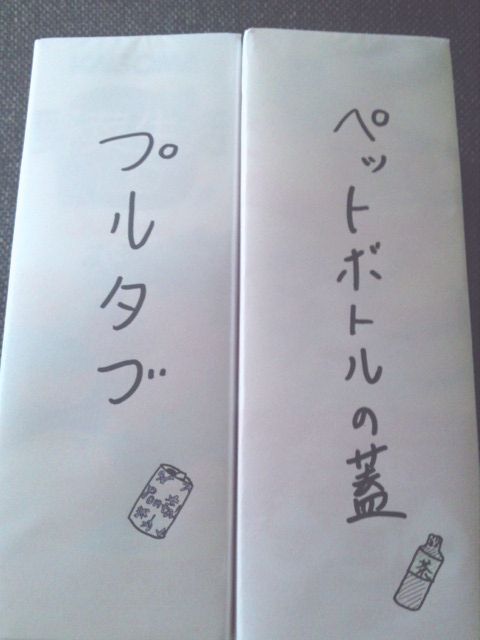 ペットボトルの蓋
茶
プルタブ